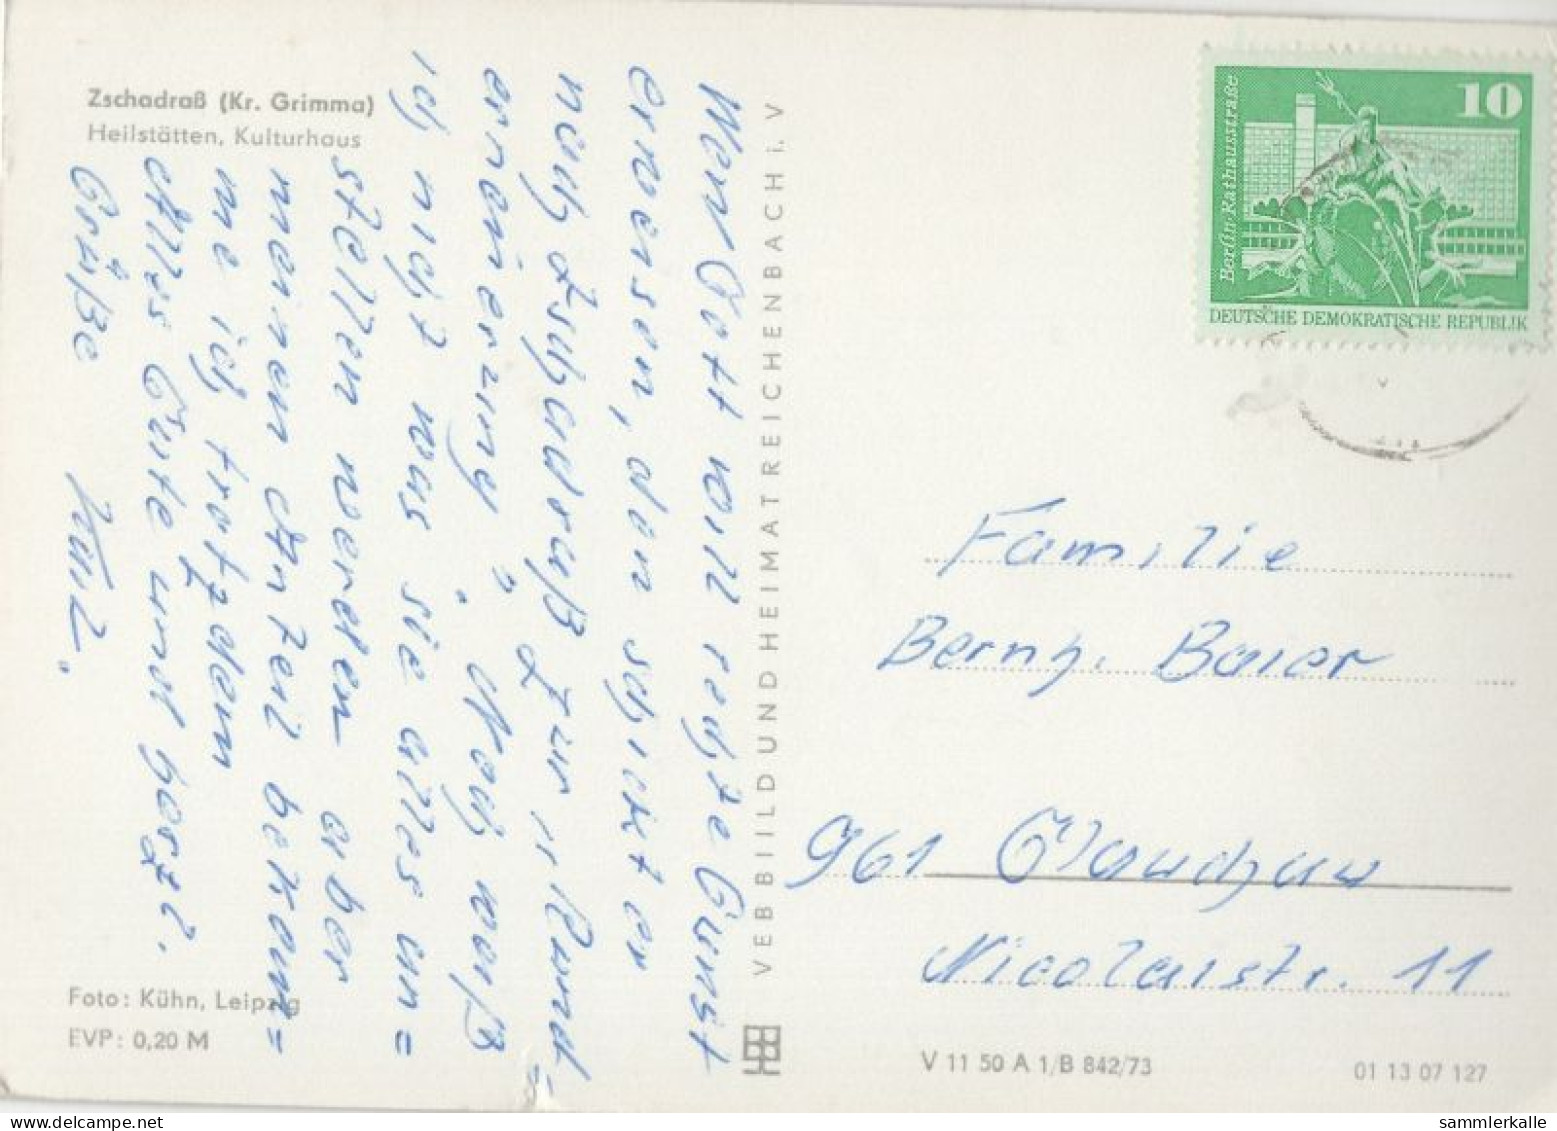 Zschadraß (Kr. Grimma)
Heilstätten, Kulturhaus
Wem Gott will rechte Gunst
erweisen, den schickt er
nach Zschadraß zur "Rund=
erneuerung". Noch weiß
ich nicht was sie alles an=
stellen werden aber
meinen Anteil bekom=
me ich trotzdem
Alles Gute und herzl.
Grüße
Foto: Kühn, Leipzig
EVP: 0,20 M
VEB BIILD UND HEIMAT REICHENBACH i. V
Berlin·Rathausstraße
10
DEUTSCHE DEMOKRATISCHE REPUBLIK
Familie
Bernh. Baier
961 Glauchau
Nicolaistr. 11
V 11 50 A 1/B 842/73
01 13 07 127
sammlerkalle